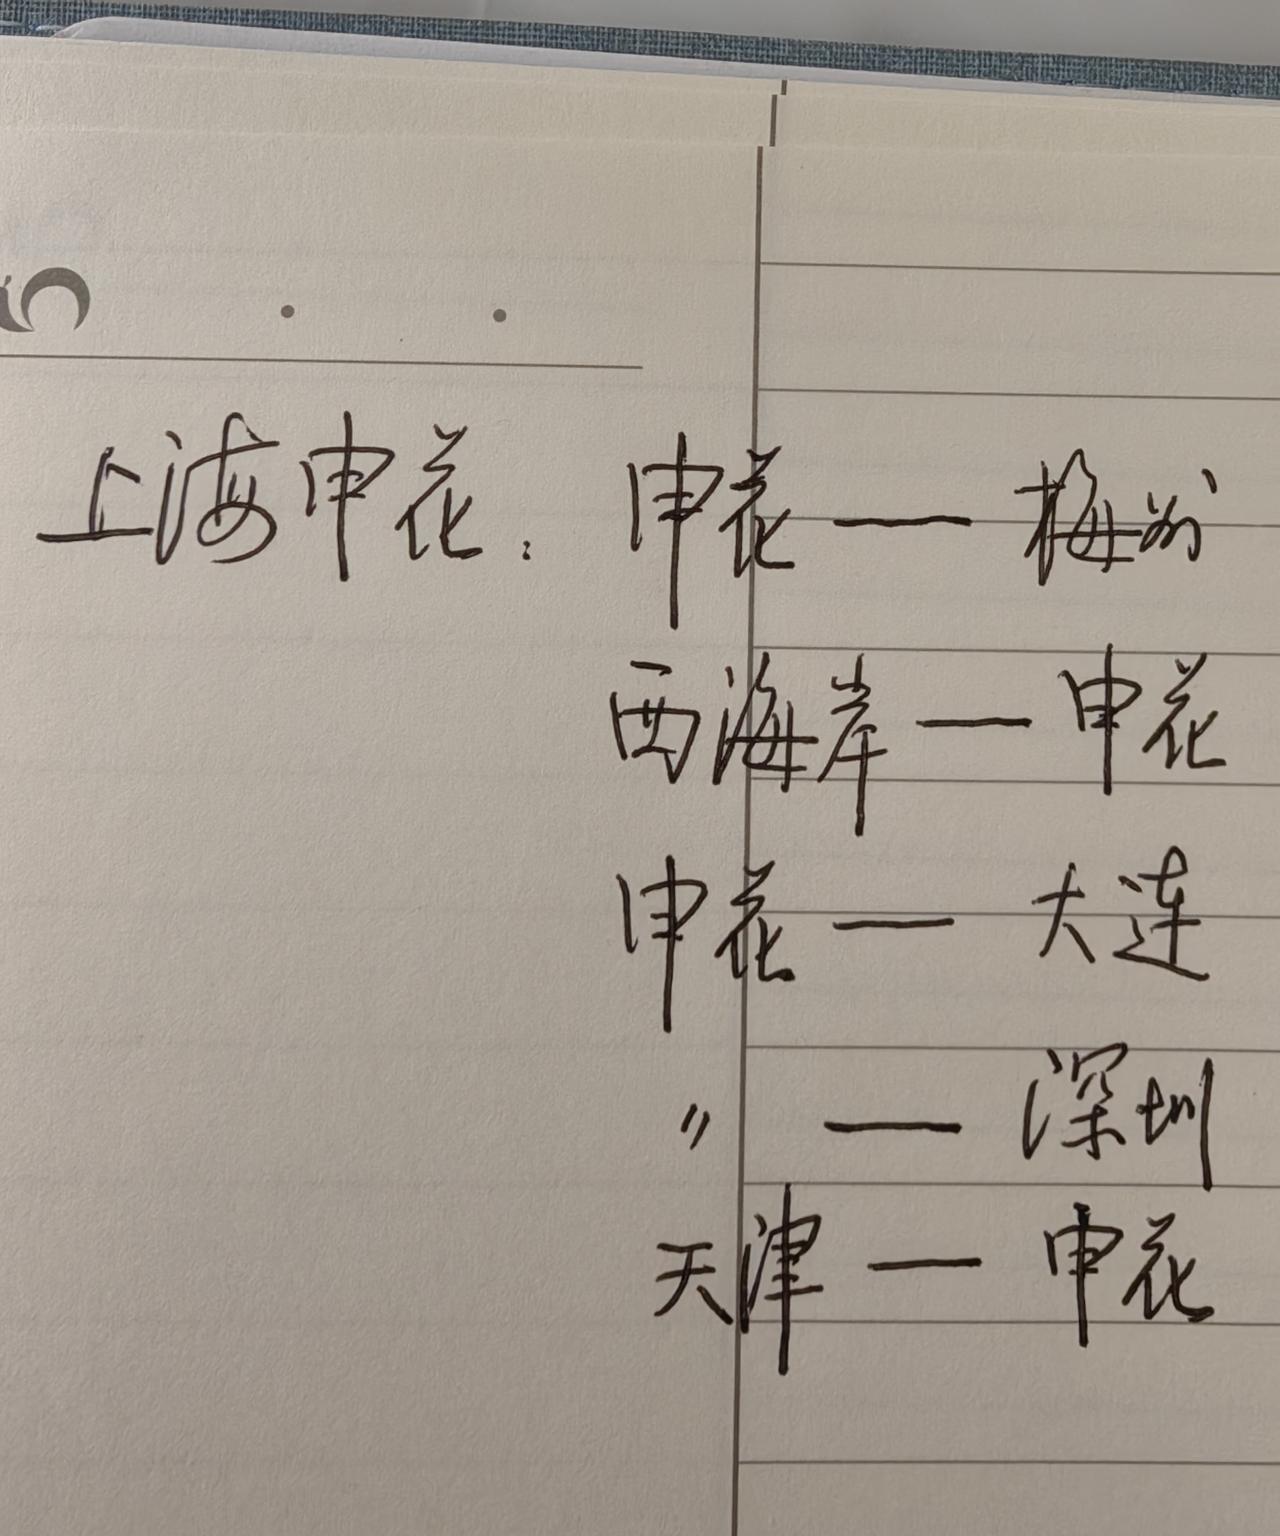 上海申花: 申花 — 梅州
西海岸 — 申花
申花 — 大连
〃 — 深圳
天津 — 申花